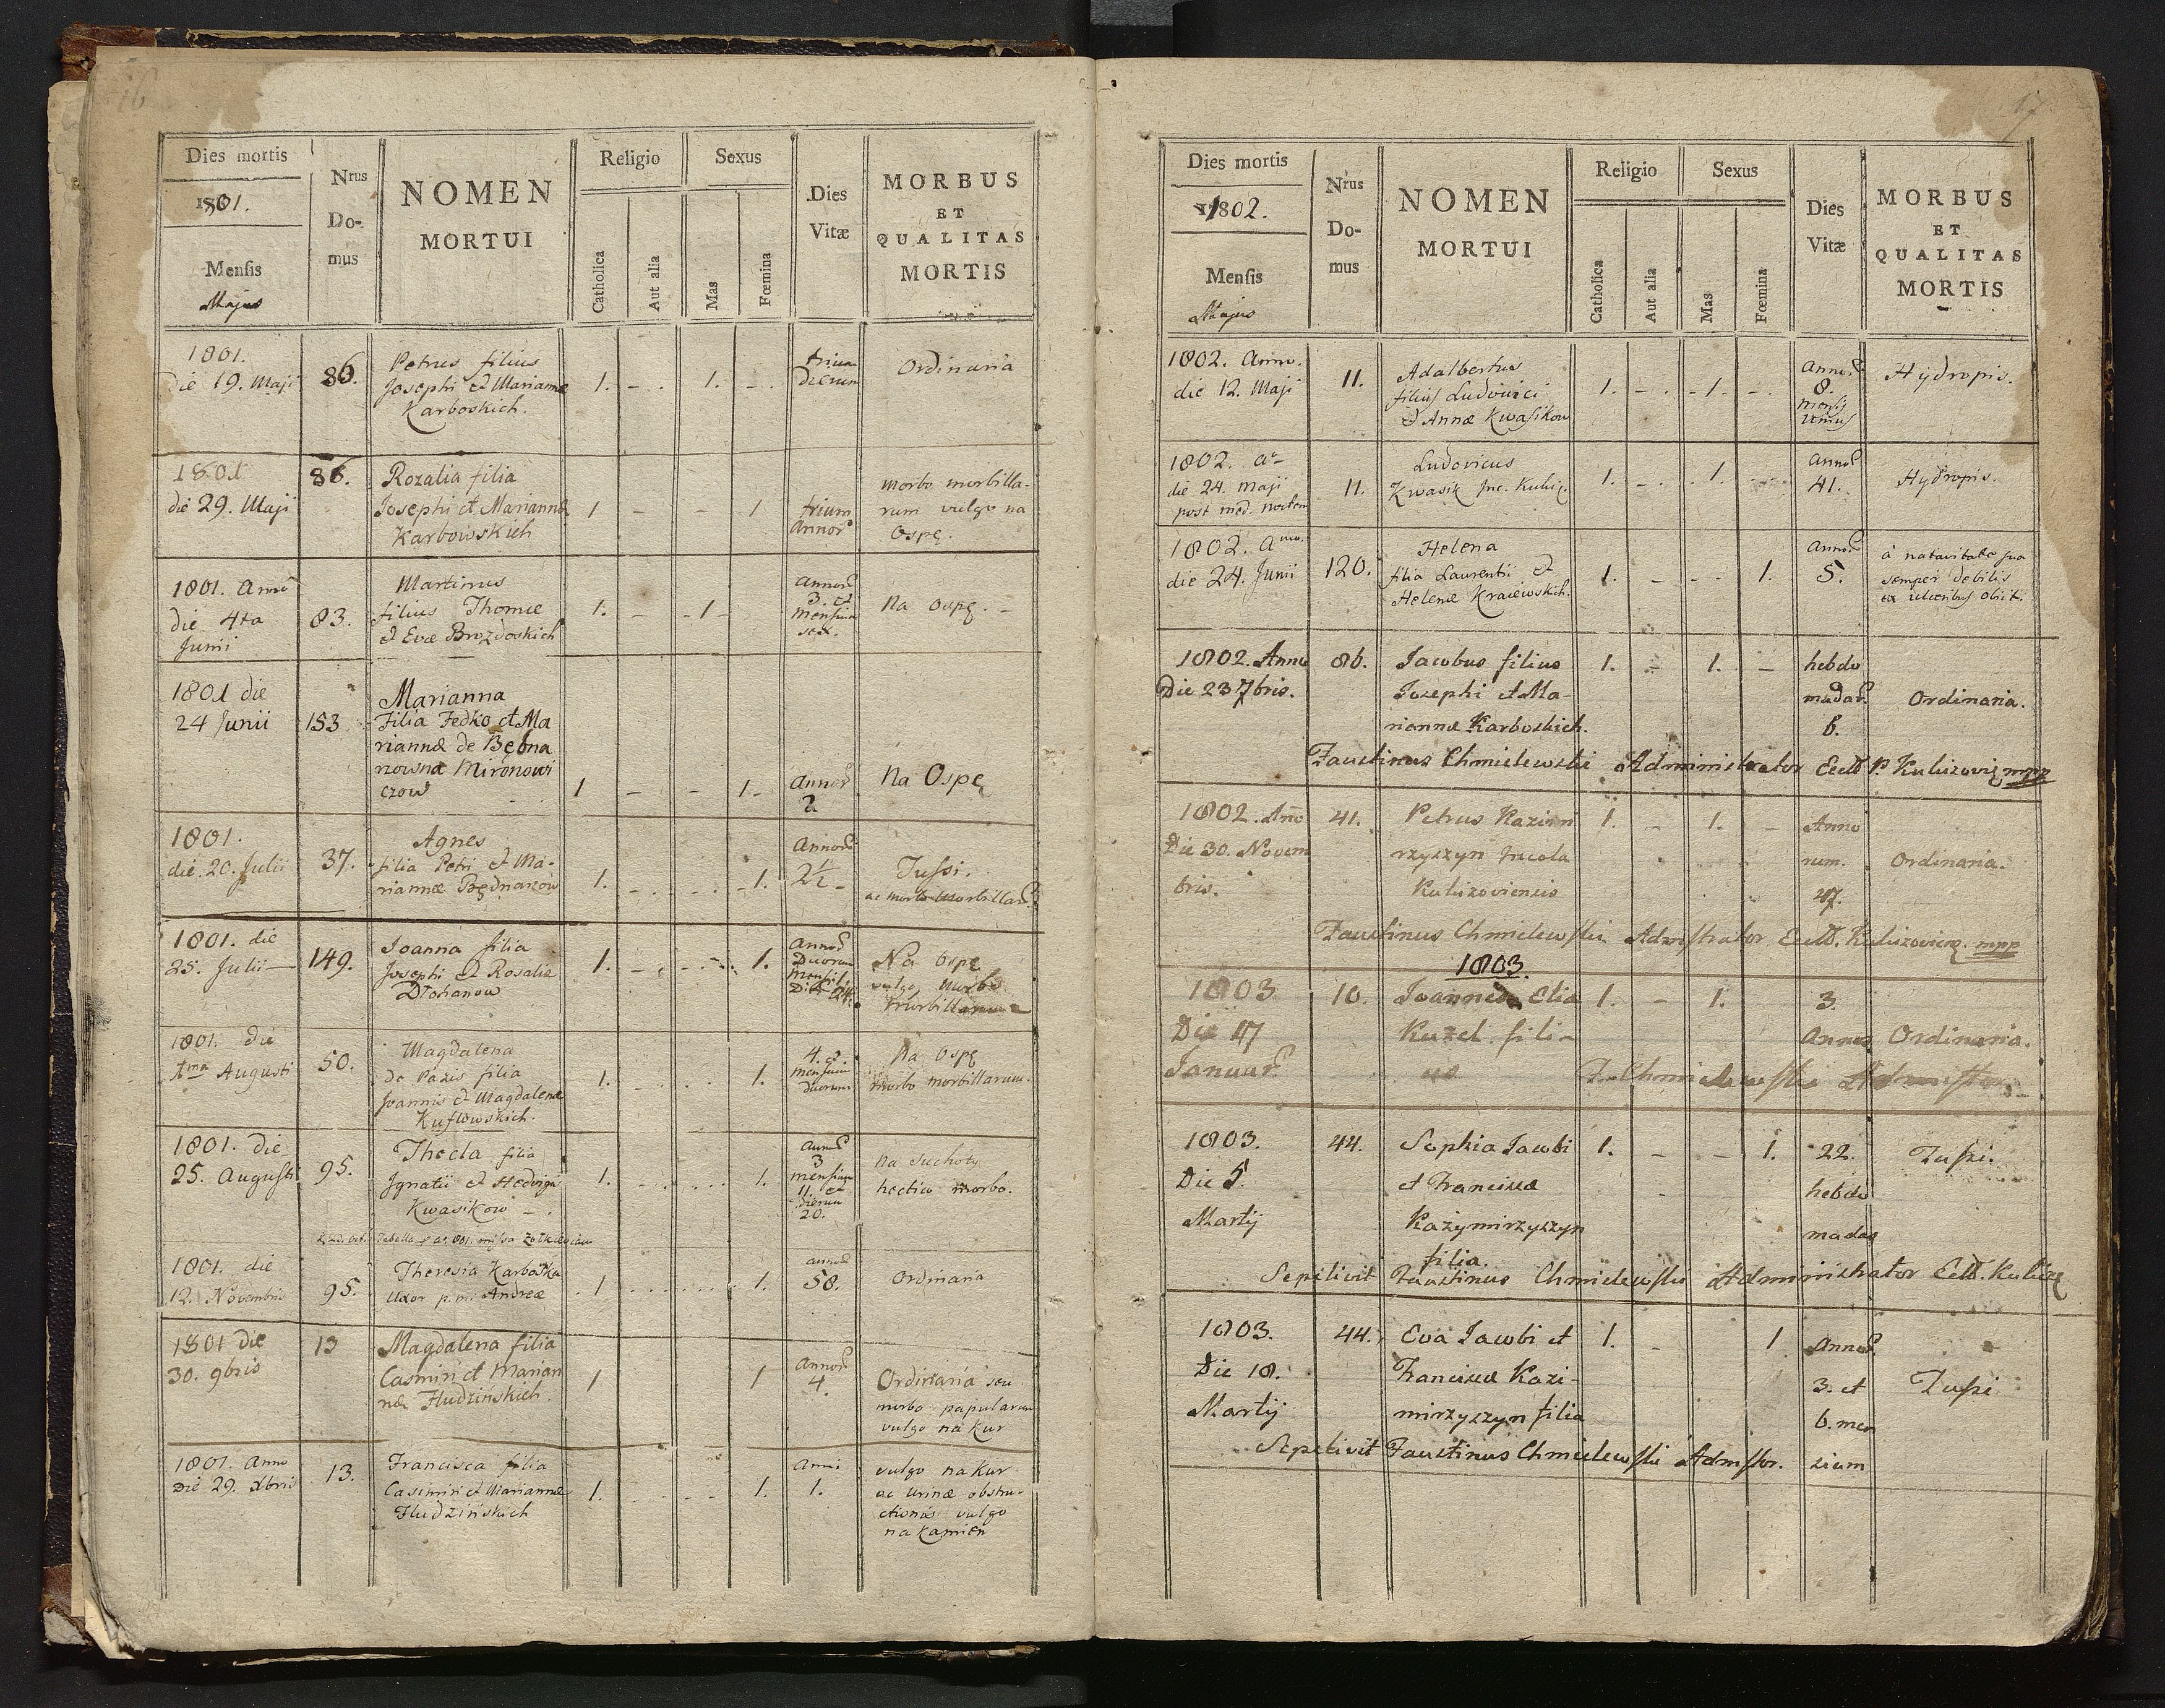 16
Dies mortis
1801.
Mensis
Majus
Nrus
Do-
mus
NOMEN
MORTUI
Religio
Catholica
Aut alia
Sexus
Mas
Fœmina
Dies
Vitæ
MORBUS
ET
QUALITAS
MORTIS
1801.
die 19. Maji
86.
Petrus filius
Josephi et Mariannæ
Karboskich.
1. - . 1. - .
trium
dierum
Ordinaria
1801
die 29. Maji
86.
Rozalia filia
Josephi et Mariannæ
Karbowskich
1 - - 1
trium
Annor
morbo morbilla-
rum vulgo na
Ospę.
1801. Anno
die 4ta
Junii
83.
Martinus
filius Thomæ
et Evæ Brozdoskich
1. - - 1 -
Annor
3. et
mensium
sex.
Na ospę. -
1801 die
24 Junii
153
Marianna
Filia Fedko et Ma
riannæ de Będna
rowna Mironowi
czow
1 - - 1 -
Annor
2.
Na Ospę
1801.
die 20. Julii
37.
Agnes
filia Petri et Ma-
riannæ Bednarzow
1. - . . . - 1.
Annor
2½ -
Tussi.
ac morbo Morbillar
1801. die
25. Julii -
149.
Joanna filia
Josephi et Rosaliæ
Dłohanow
1. - . . . 1.
Annor
Duorum
Mensis
Die 24.
Na ospę
vulgo morbo
morbillarum
1801. die
1ma Augusti
50.
Magdalena
de Pazis filia
Joannis et Magdalenæ
Kuflowskich.
1. . . . . 1.
4. et
mensium
duorum
Na Ospę
morbo morbillarum.
1801. die
25. Augusti
95.
Thecla filia
Ignatii et Hedvigis
Kwasikow - .
1. . . . . . 1.
Annor
3
mensium
11. et
dierum
20.
Na suchoty
hectico morbo.
Tabella 1801. missa
1801. die
12. Novembris
95.
Theresia Karboska
Uxor p. m. Andreæ
. 1 . . . . . . 1.
annor
58.
Ordinaria
1801 die
30. 9bris
13
Magdalena filia
Casimiri et Marian
næ Hudzinskich.
1 1
Annor
4.
Ordinaria seu
morbo papularum
vulgo na kur
1801. Anno
Die 29. Xbris
13.
Francisca filia
Casimiri et Mariannæ
Hudzinskich
1. . . - - 1.
Anni
1.
vulgo na Kur
ac Urinæ obstru-
ctionis vulgo
na kamien
17
Dies mortis
1802.
Mensis
Majus
Nrus
Do-
mus
NOMEN
MORTUI
Religio
Catholica
Aut alia
Sexus
Mas
Fœmina
Dies
Vitæ
MORBUS
ET
QUALITAS
MORTIS
1802. Anno.
die 12. Maji
11.
Adalbertus
filius Ludovici
et Annæ Kwasikow
1. - . - 1. - .
Annor
8.
mensis
Unius
Hydropis.
1802. ao
die 24. maji
post med. noctem
11.
Ludovicus
Kwasik Inc. Kulic.
1. - . . 1. . .
Annor
41.
Hydropis.
1802. Anno.
die 24. Junii
120.
Helena
filia Laurentii et
Helenæ Kraiewskich.
1. - - - 1.
Annor
5.
à natavitate sua
semper debilis
ex ulceribus obiit.
1802. Anno
Die 23 7bris.
86.
Jacobus filius
Josephi et Ma-
riannæ Karboskich.
1. - 1. -
hebdo
madar
6.
Ordinaria.
Faustinus Chmielewski Administrator Eccl. P. Kulizovię mpp
1802. Ano
Die 30. Novem
bris.
41.
Petrus Kazim
rzyszyn Incola
Kulizoviensis
1. - 1. -
Anno
rum.
47.
Ordinaria.
Faustinus Chmielewski Admstrator Eccl. Kulizovieng. mpp
1803.
1803
Die 17
Januar
10.
Joannes Eliæ
Kuzel fili-
us
1. - 1.
3.
Annor
Ordinaria.
F. Chmielewski Admstor
1803.
Die 5.
Martij
44.
Sophia Jacobi
et Franciscæ
Kazymirzyszyn
filia.
1. - - 1.
22.
hebdo
madas
Tussi.
Sepelivit Faustinus Chmielewski Administrator Eccl. Kulizę
1803.
Die 18.
Martij
44.
Eva Jacobi et
Franciscæ Kazi-
mirzyszyn filia
1. - 1
Annor
3. et
6. men
sium
Tussi
Sepelivit Faustinus Chmielewski Admstor.